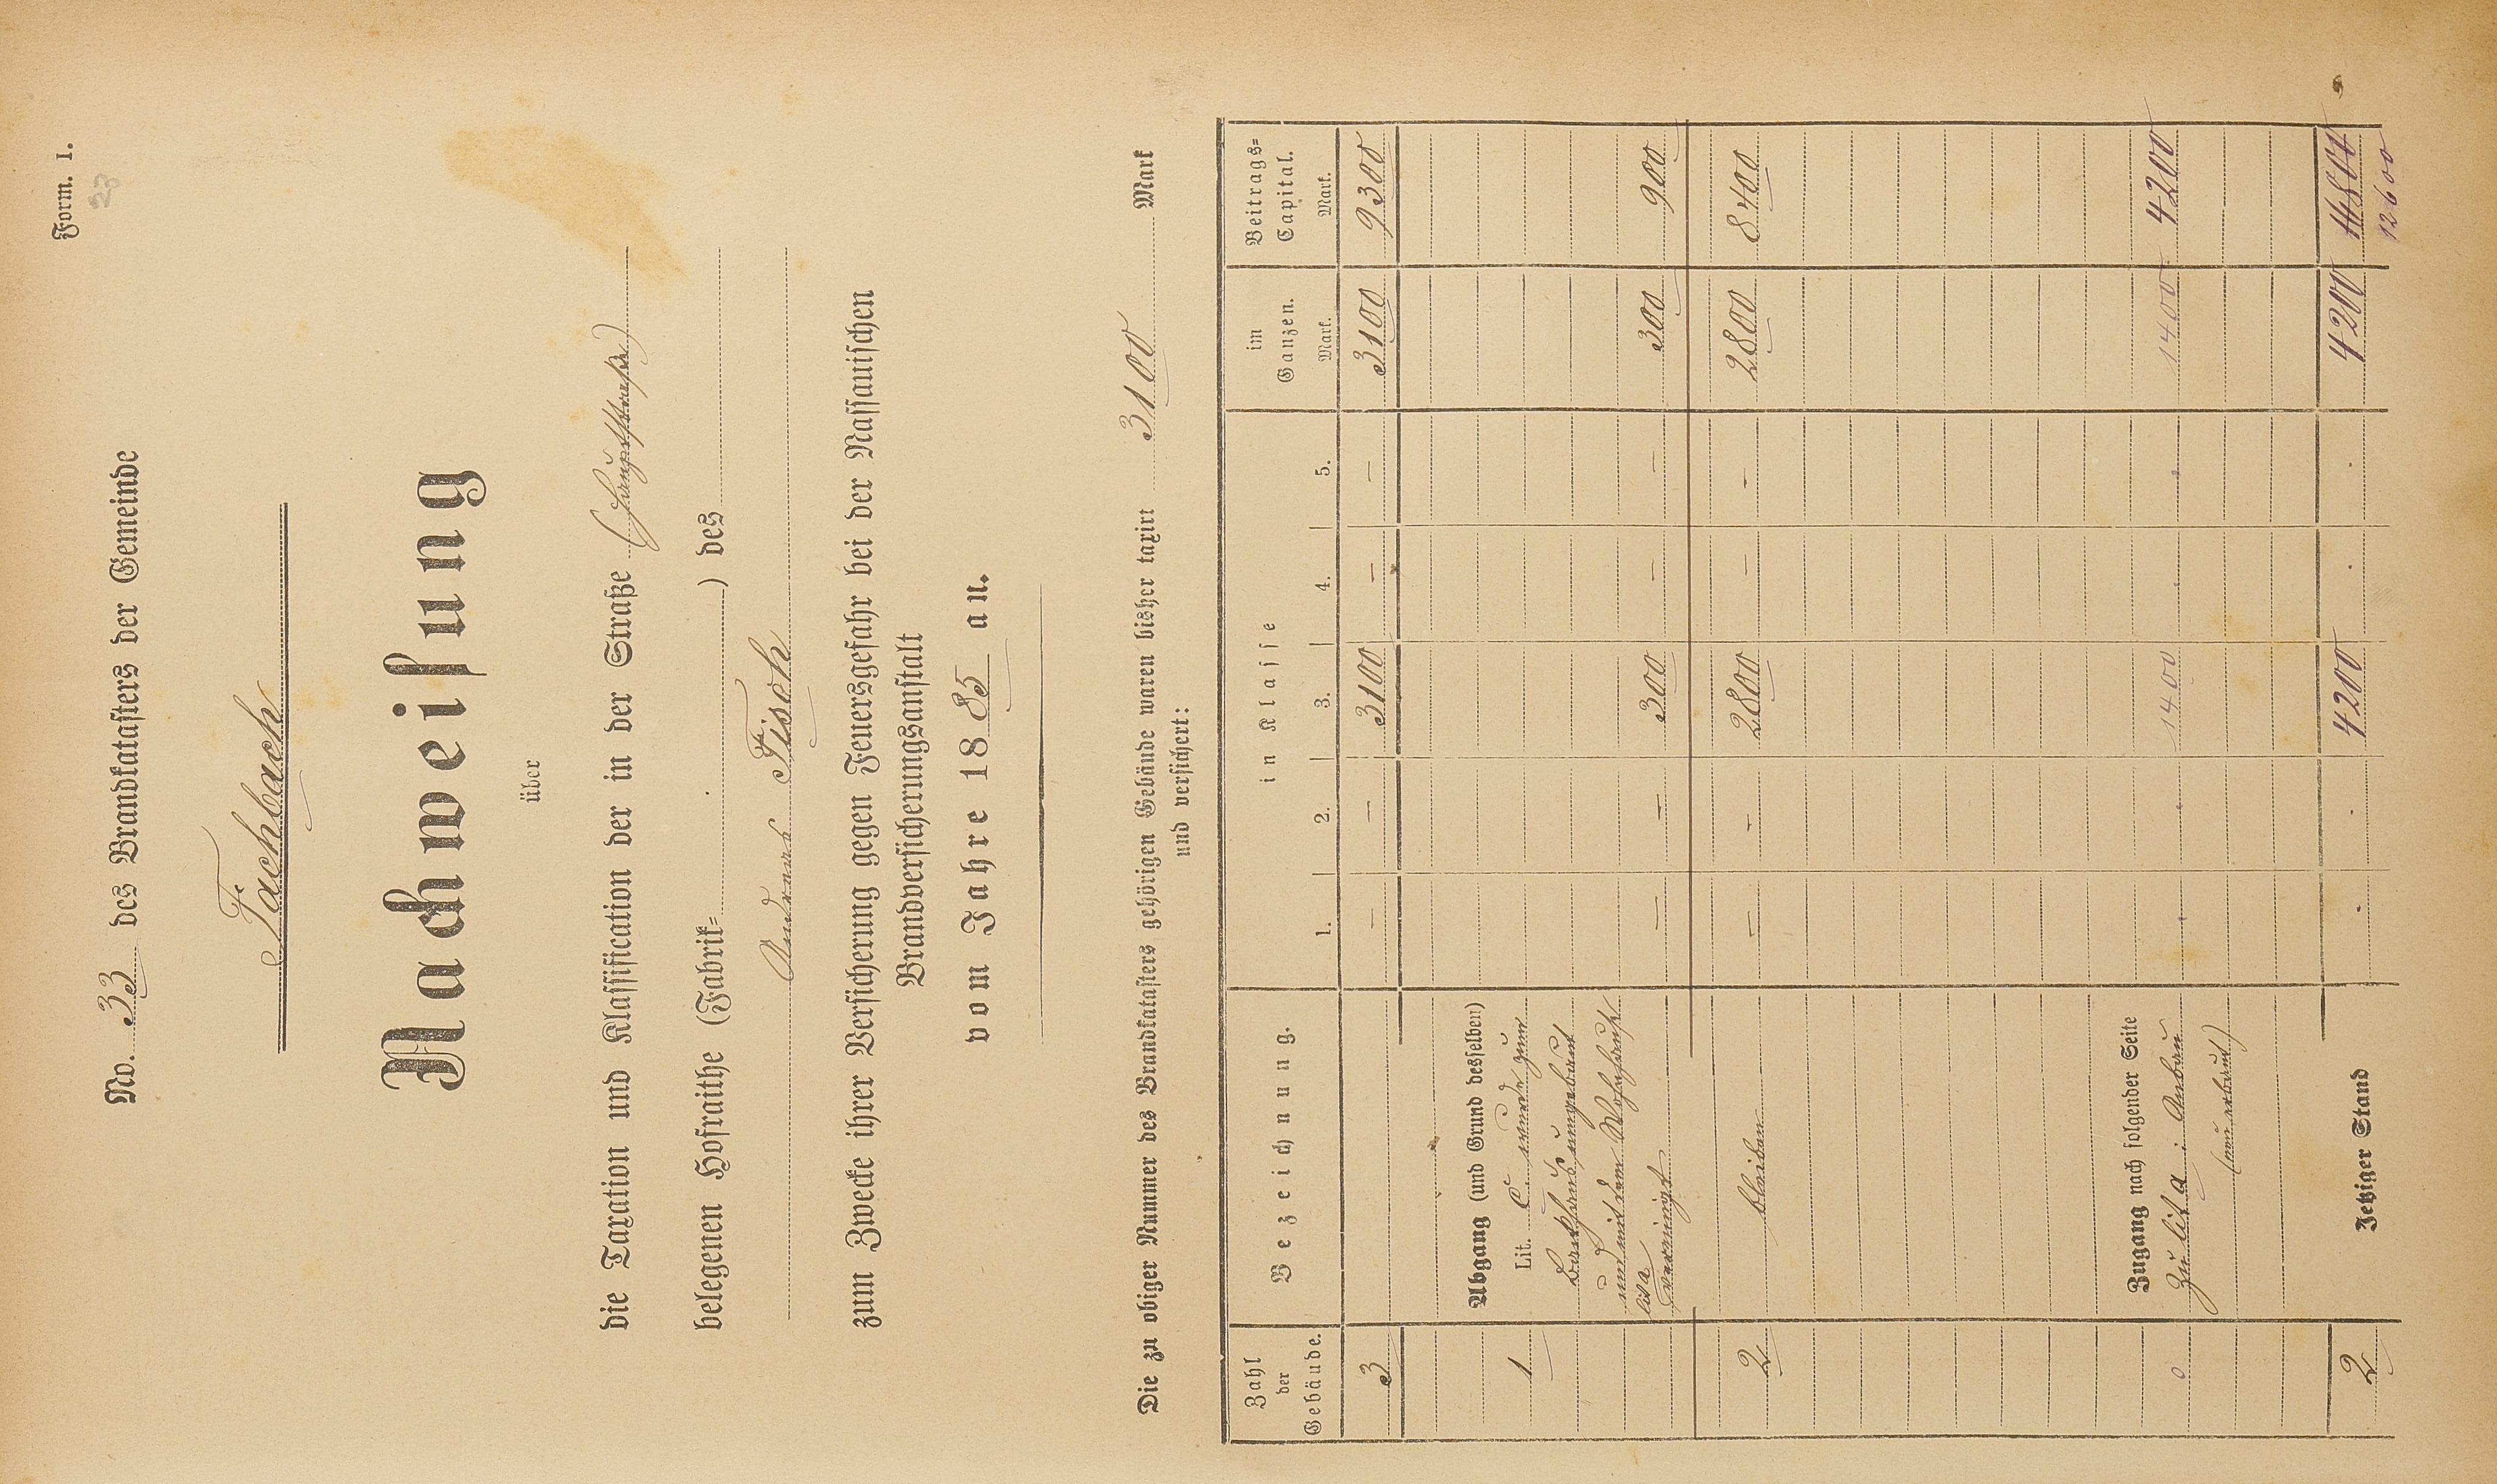 Form. 1.
23
No. 33 des Brandkatasters der Gemeinde
Fachbach
Nachweisung
über
die Taxation und Klassification der in der Straße (Hauptstraße)
belegenen Hofraithe (Fabrik= ) des
Andreas Fisch
zum Zwecke ihrer Versicherung gegen Feuersgefahr bei der Nassauischen
Brandversicherungsanstalt
vom Jahre 1885 an.
Die zu obiger Nummer des Brandkatasters gehörigen Gebäude waren bisher taxirt 3100 Mark
und versichert:
Zahl der Gebäude. Bezeichnung. in Klasse 1. 2. 3. 4. 5. im Ganzen. Mark. Beitrags= Capital. Mark.
3 – – 3100 – – 3100 9300
Abgang (und Grund desselben)
1 Lit. C. wurde zum
Backhaus umgebaut
und mit dem Wohnhaus
lit a
vereinigt – – 300 – – 300 900
2 bleiben – – 2800 – – 2800 8400
Zugang nach folgender Seite
0 Zu lit a: Anbau . . 1400 . . 1400 4200
(neu erbaut)
2 Jetziger Stand . . 4200 . . 4200
12600